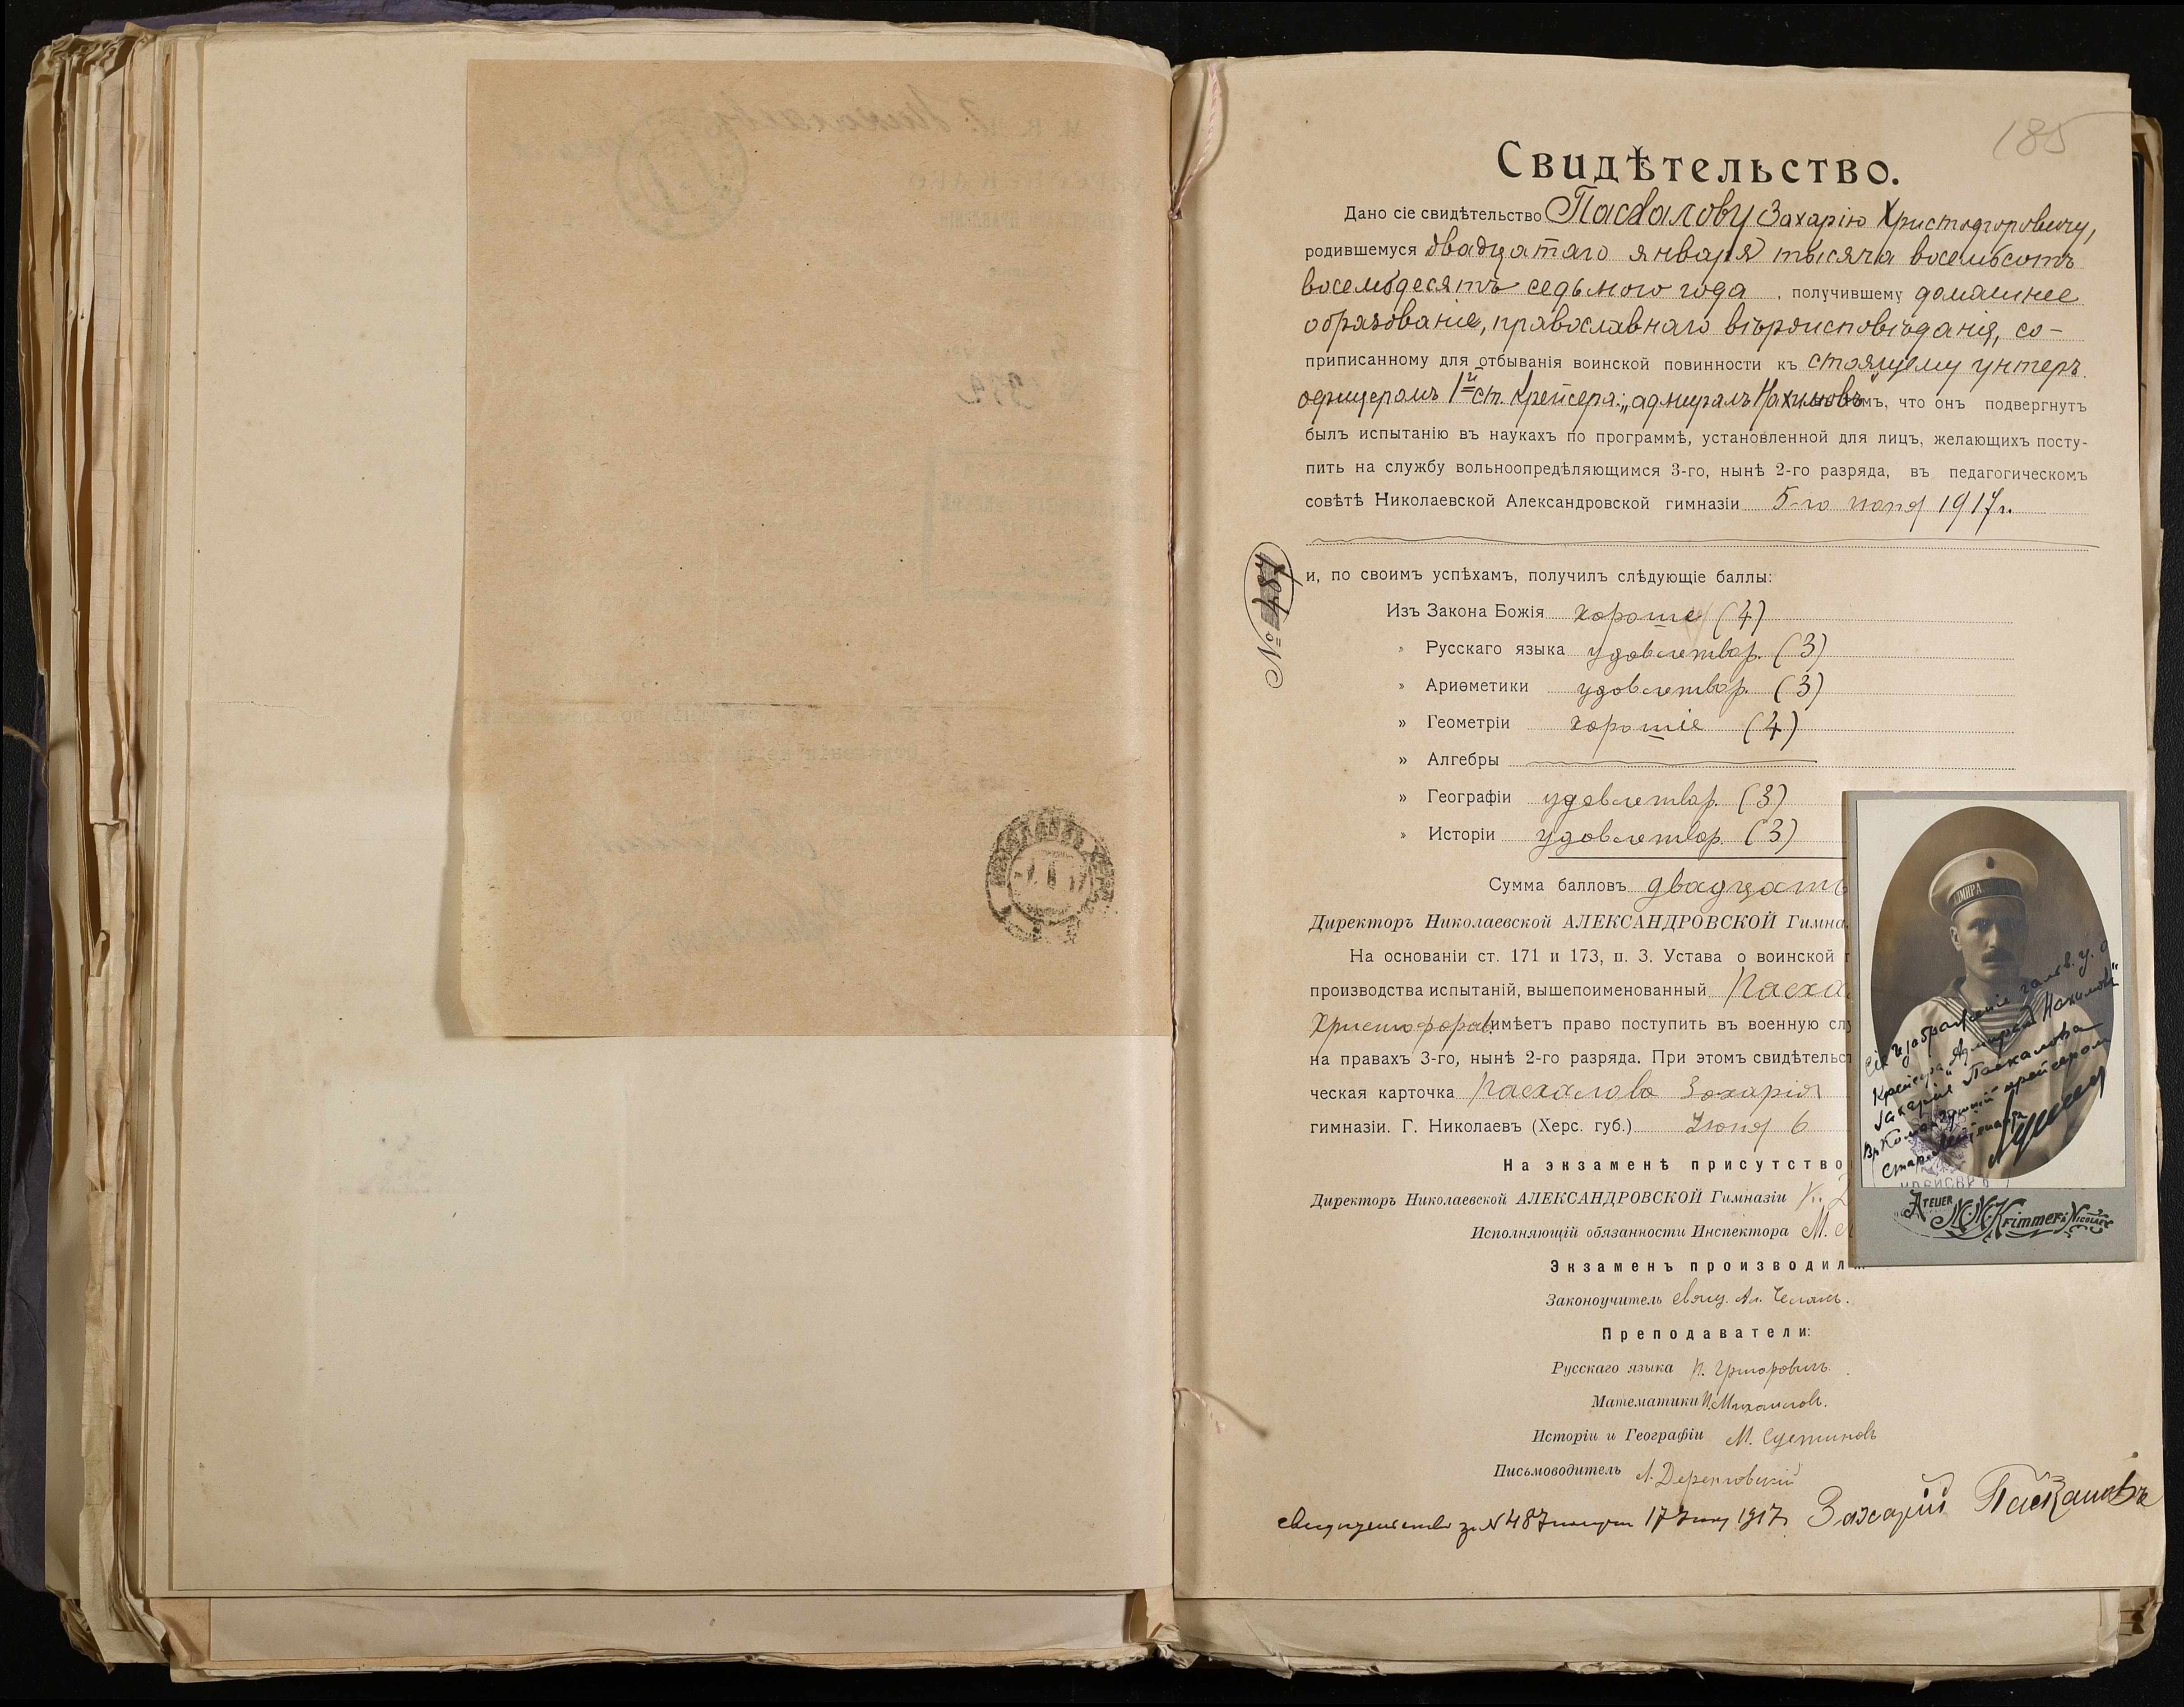 185
Свидѣтельство.
Дано сіе свидѣтельство Пасхалову Захарію Христофоровичу,
родившемуся двадцатаго января тысяча восемьсотъ
восемьдесятъ седьмого года, получившему домашнее
образованіе, православнаго вѣроисповѣданія, со-
приписанному для отбыванія воинской повинности къ стоящему унтеръ
офицеромъ 1й ст. крейсера: „адмиралъ Нахимовъ" томъ, что онъ подвергнутъ
былъ испытанію въ наукахъ по программѣ, установленной для лицъ, желающихъ посту-
пить на службу вольноопредѣляющимся 3-го, нынѣ 2-го разряда, въ педагогическомъ
совѣтѣ Николаевской Александровской гимназіи 5-го іюня 1917 г.
и, по своимъ успѣхамъ, получилъ слѣдующіе баллы:
№ 487
Изъ Закона Божія хорошіе (4)
" Русскаго языка удовлетвор. (3)
" Ариѳметики удовлетвор. (3)
" Геометріи хорошіе (4)
" Алгебры
" Географіи удовлетвор. (3)
" Исторіи удовлетвор. (3)
Сумма балловъ двадцать
Директоръ Николаевской АЛЕКСАНДРОВСКОЙ Гимна
На основаніи ст. 171 и 173, п. 3. Устава о воинской
производства испытаній, вышепоименованный Пасха
Христофоров. имѣетъ право поступить въ военную слу
на правахъ 3-го, нынѣ 2-го разряда. При этомъ свидѣтельст
ческая карточка Пасхалова Захарія
гимназіи. Г. Николаевъ (Херс. губ.) Іюня 6
На экзаменѣ присутство
Директоръ Николаевской АЛЕКСАНДРОВСКОЙ Гимназіи К.
Исполняющій обязанности Инспектора М.
Экзаменъ производил
Законоучитель свящ. Ал.
Преподаватели:
Русскаго языка П. Григоровичъ.
Математики И. Михаиловъ.
Исторіи и Географіи М. Сустиновъ
Письмоводитель А. Деренговскій
свидѣтельство за № 487 получилъ 17 Іюня 1917 г. Захарій Пасхаловъ
Сіе изображеніе гальв. у. о.
Крейсера „Адмиралъ Нахимовъ"
Захарія Пасхалова
Вр. Командующій крейсеромъ
Старш. Лейтенантъ
ATELIER M. M. Krimmer à NICOLAEV